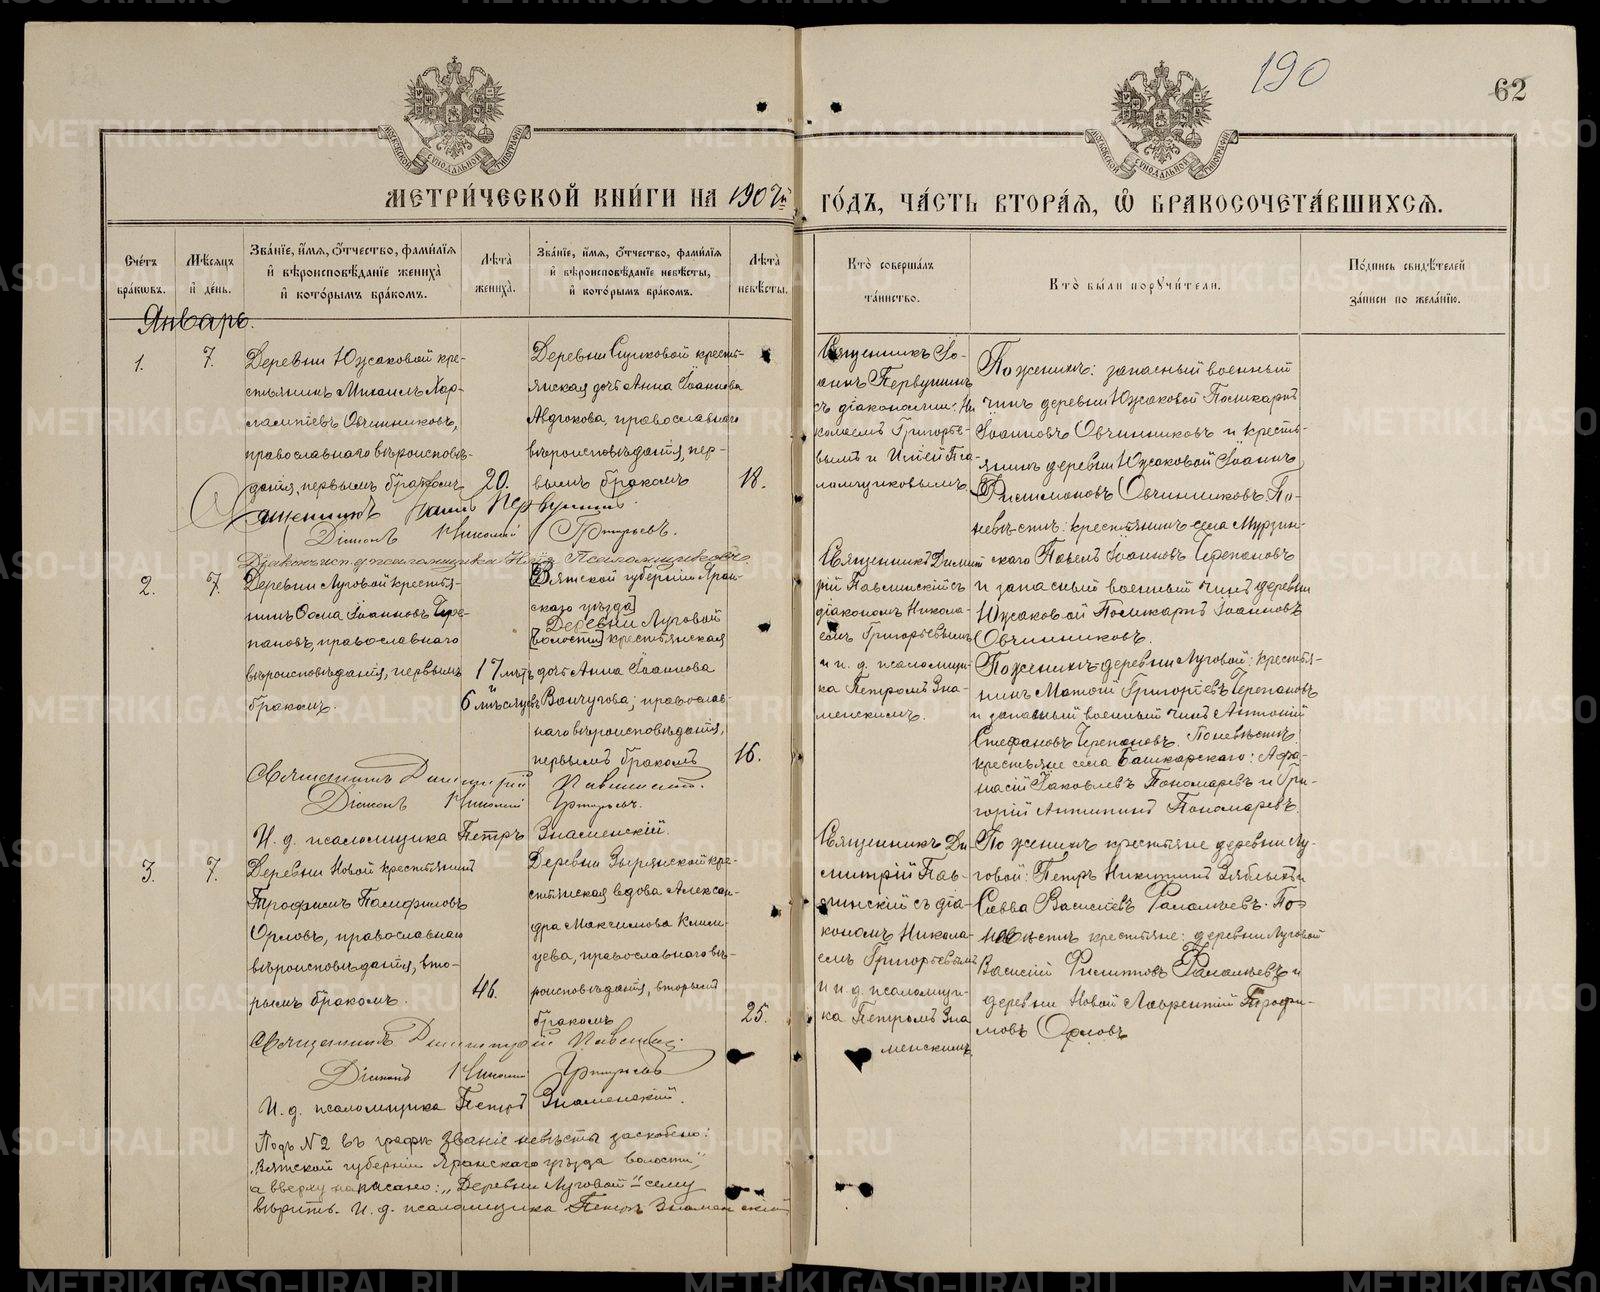 190
62
МЕТРИ́ЧЕСКОЙ КНИ́ГИ НА 1907й ГО́ДЪ, ЧА́СТЬ ВТОРА́Я, Ѽ БРАКОСОЧЕТА́ВШИХСЯ.
Сче́тъ бра́кѡвъ.
Мѣ́сяцъ и҆ де́нь.
Зва́нїе, и҆́мя, ѻ҆́тчество, фами́лїя
и҆ вѣроисповѣ́данїе жениха̀
и҆ кото́рымъ бра́комъ.
Лѣ́та жениха̀.
Зва́нїе, и҆́мя, ѻ҆́тчество, фами́лїя
и҆ вѣроисповѣ́данїе невѣ́сты,
и҆ кото́рымъ бра́комъ.
Лѣ́та невѣ́сты.
Кто̀ соверша́лъ
та́инство.
Кто̀ бы́ли порꙋчи́тели.
По́дпись свидѣ́телей
за́писи по жела́нїю.
Январь.
1.
7.
Деревни Южаковой кре-
стьянинъ Михаилъ Хар-
лампіевъ Овчинниковъ,
православнаго вѣроисповѣ-
данія, первымъ бракомъ
20.
Деревни Сусковой кресть-
янская дочь Анна Іоаннова
Авдюкова, православнаго
вѣроисповѣданія, пер-
вымъ бракомъ
18.
Священникъ Іо-
аннъ Первушинъ
съ діакономъ Ни
колаемъ Григорье-
вымъ и Иліей Пса-
ломщиковымъ.
По женихѣ: запасный военный
чинъ деревни Южаковой Поликарпъ
Іоанновъ Овчинниковъ и кресть-
янинъ деревни Южаковой Іоаннъ
Филимоновъ Овчинниковъ. По
невѣстѣ: крестьянинъ села Мурзин-
скаго Павелъ Іоанновъ Черепановъ
и запасный военный чинъ деревни
Южаковой Поликарпъ Іоанновъ
Овчинниковъ.
Священникъ Іоаннъ Первушинъ.
Діаконъ Николай Григорьевъ.
2.
7.
Деревни Луговой кресть-
янинъ Ѳома Іоанновъ Чере-
пановъ, православнаго
вѣроисповѣданія, первымъ
бракомъ.
17 лѣтъ
и
6 мѣсяцевъ
[Вятской губерніи Яран-
скаго уѣзда]
Деревни Луговой
[волости] крестьянская
дочь Анна Іоаннова
Ванчугова, православ-
наго вѣроисповѣданія,
первымъ бракомъ
16.
Священникъ Димит
рій Павлинскій съ
діакономъ Никола-
емъ Григорьевымъ
и и. д. псаломщи-
ка Петромъ Зна-
менскимъ.
По женихѣ деревни Луговой: кресть-
янинъ Матѳій Григоріевъ Черепановъ
и запасный военный чинъ Антоній
Стефановъ Черепановъ. По невѣстѣ
крестьяне села Башкарскаго: Аѳа-
насій Іаковлевъ Пономаревъ и Гри-
горій Антипинъ Пономаревъ.
Священникъ Димитрій Павлинскій.
Діаконъ Николай Григорьевъ.
И. д. псаломщика Петръ Знаменскій.
3.
7.
Деревни Новой крестьянинъ
Трофимъ Памфиловъ
Орловъ, православнаго
вѣроисповѣданія, вто-
рымъ бракомъ.
46.
Деревни Зырянской кре-
стьянская вдова Алексан-
дра Максимова Клим-
цева, православнаго вѣ-
роисповѣданія, вторымъ
бракомъ
25.
Священникъ Ди-
митрій Пав-
линскій съ діа-
кономъ Никола-
емъ Григорьевымъ
и и. д. псаломщи-
ка Петромъ Зна
менскимъ
По женихѣ крестьяне деревни Лу-
говой: Петръ Никитинъ Зяблыхъ и
Савва Василіевъ Фалалѣевъ. По
невѣстѣ крестьяне: деревни Луговой
Василій Филиповъ Фалалѣевъ и
деревни Новой Лаврентій Трофи-
мовъ Орловъ
Священникъ Димитрій Павлинскій.
Діаконъ Николай Григорьевъ
И. д. псаломщика Петръ Знаменскій.
Подъ №2 въ графѣ званіе невѣсты заскоблено:
„Вятской губерніи Яранскаго уѣзда волости",
а вверху написано: „Деревни Луговой" сему
вѣрить. И. д. псаломщика Петръ Знаменскій
METRIKI.GASO-URAL.RU